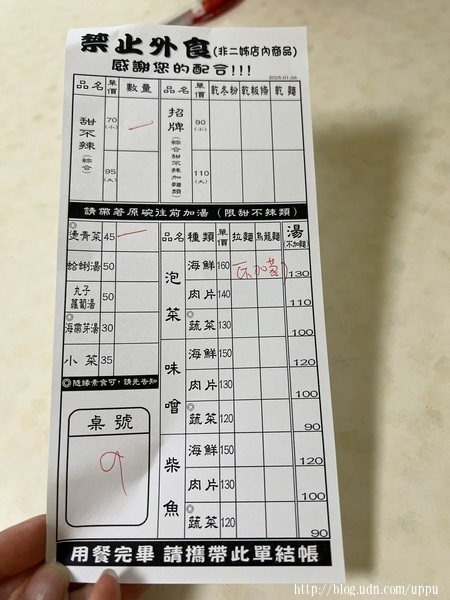 禁止外食(非二姊店內商品)
感謝您的配合!!!
2025.01.06
品名 單價 數量 品名 單價 乾冬粉 乾粄條 乾麵
甜不辣(綜合) 70(小) 一 招牌(綜合甜不辣加麵類) 90(小)
95(大) 110(大)
請帶著原碗往前加湯(限甜不辣類)
◎燙青菜 45 一 品名 種類 單價 拉麵 烏龍麵 湯(不加麵)
蛤蜊湯 50 泡菜 海鮮 160 不加蔥 130
丸子蘿蔔湯 50 肉片 140 110
◎海帶芽湯 30 ◎蔬菜 130 100
小菜 35 味噌 海鮮 150 120
◎隨緣素食可,請先告知 肉片 130 100
桌號 ◎蔬菜 120 90
9 柴魚 海鮮 150 120
肉片 130 100
◎蔬菜 120 90
用餐完畢 請攜帶此單結帳
http://blog.udn.com/uppu